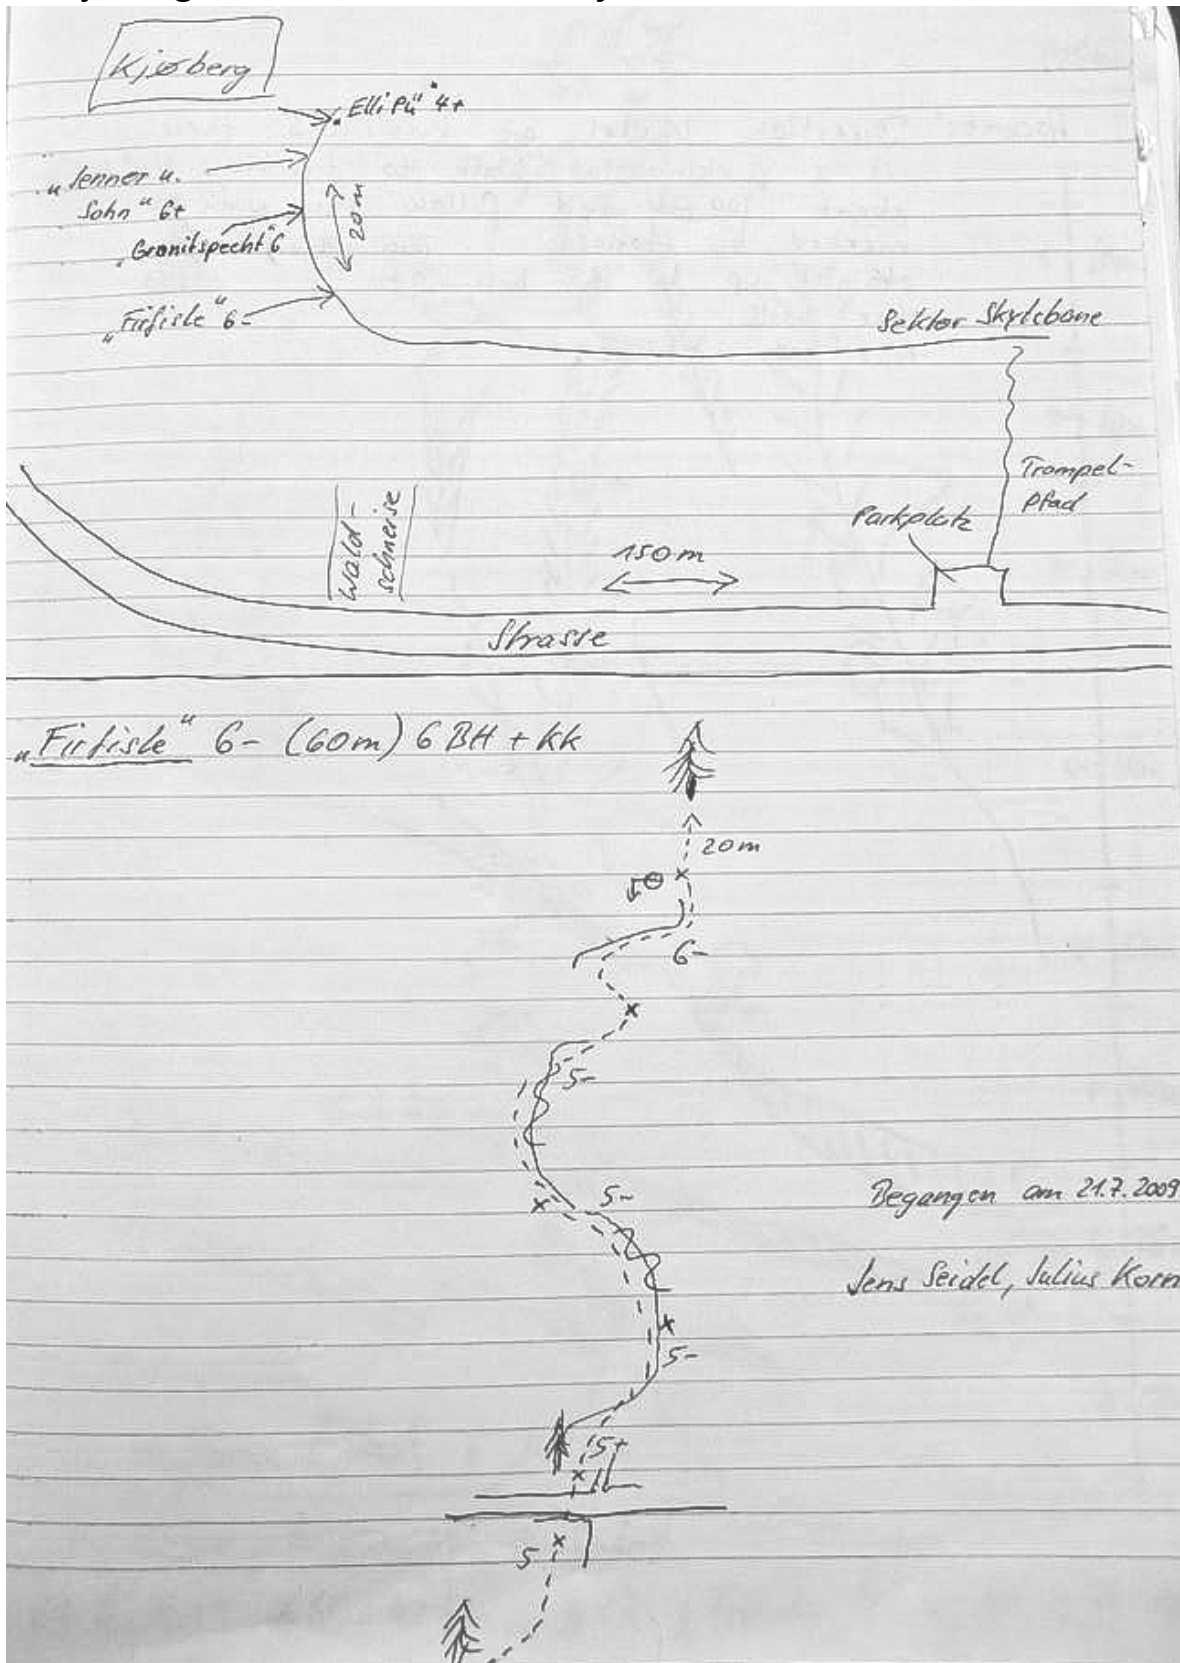 Kjøberg
"Elli Pü" 4+
"Jenner u.
Sohn" 6+
20m
"Granitspecht" 6
"Firfisle" 6-
Sektor Skytebane
Trampel-
pfad
Parkplatz
Wald-
schneise
150m
Strasse
"Firfisle" 6- (60m) 6 BH + KK
20m
6-
5-
5-
Begangen am 21.7.2009
Jens Seidel, Julius Korn
5-
5+
5